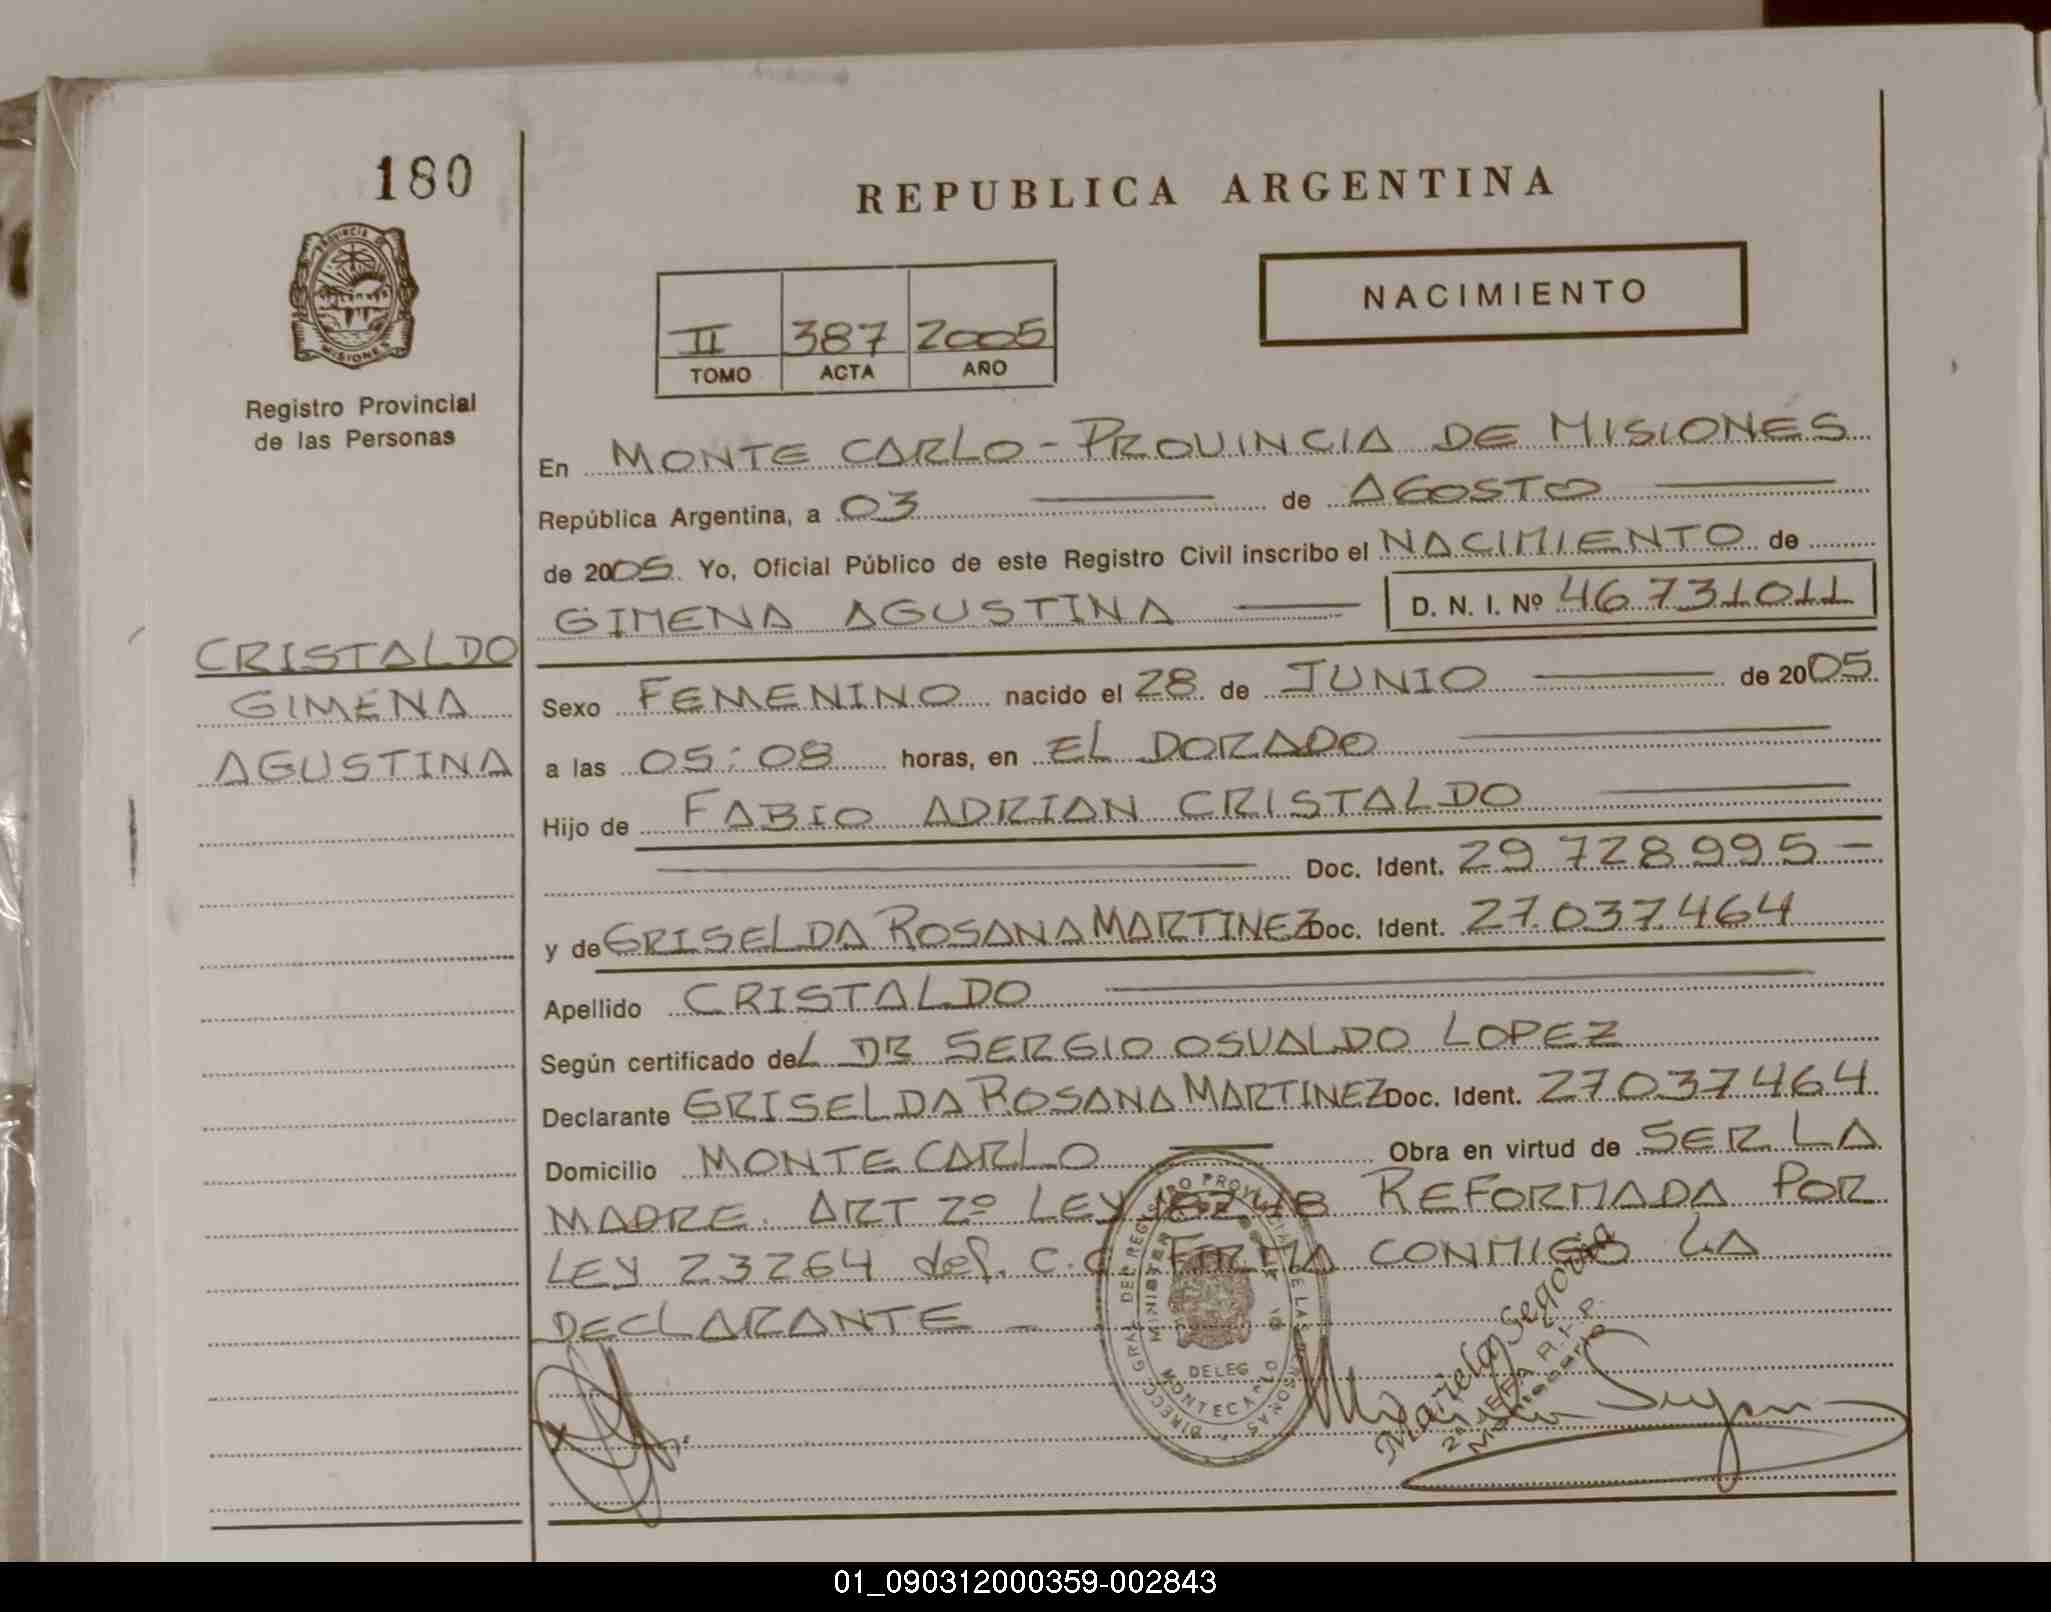 180
REPUBLICA ARGENTINA
PROVINCIA DE
MISIONES
Registro Provincial
de las Personas
II 387 2005
TOMO ACTA AÑO
NACIMIENTO
En MONTE CARLO - PROVINCIA DE MISIONES
República Argentina, a 03 de AGOSTO
de 2005. Yo, Oficial Público de este Registro Civil inscribo el NACIMIENTO de
GIMENA AGUSTINA D. N. I. Nº 46.731011
CRISTALDO
GIMENA
AGUSTINA
Sexo FEMENINO nacido el 28 de JUNIO de 2005.
a las 05:08 horas, en EL DORADO
Hijo de FABIO ADRIAN CRISTALDO
Doc. Ident. 29 728 995 -
y de GRISELDA ROSANA MARTINEZ Doc. Ident. 27.037.464
Apellido CRISTALDO
Según certificado del DR SERGIO OSVALDO LOPEZ
Declarante GRISELDA ROSANA MARTINEZ Doc. Ident. 27037464
Domicilio MONTE CARLO Obra en virtud de SER LA
MADRE. ART 2º LEY 18248 REFORMADA POR
LEY 23264 del. C.C FIRMA CONMIGO LA
DECLARANTE -
DIRECC GRAL DEL REGISTRO PROVINCIAL DE LAS PERSONAS
DELEG
MONTECARLO
Mariela Segovia
2a JEFA R.P.P.
Montecarlo
01_090312000359-002843